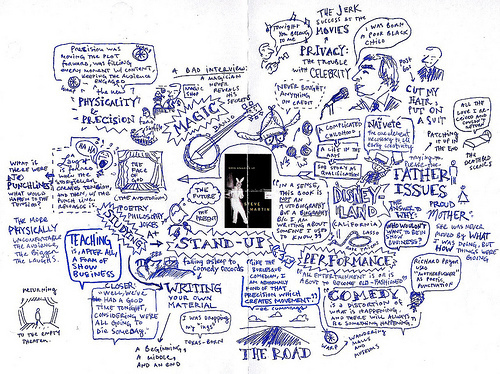 PRECISION WAS
MOVING THE PLOT
FORWARD, WAS FILLING
EVERY MOMENT W/ CONTENT,
KEEPING THE AUDIENCE
ENGAGED
the new
PHYSICALITY
& PRECISION
A BAD INTERVIEW:
A MAGICIAN
NEVER
REVEALS
HIS
SECRETS
MAGIC
SHOP
MAGIC
BANJO
TONIGHT
YOU
BELONG
TO ME
THE JERK
SUCCESS AT THE
MOVIES
PRIVACY:
THE TROUBLE
WITH CELEBRITY
"NEVER BOUGHT
ANYTHING
ON CREDIT"
I WAS BORN
A POOR BLACK
CHILD
CUT MY
HAIR,
PUT ON
A SUIT
A COMPLICATED
CHILDHOOD
A LIFE IN THE
ARTS
NAÏVETÉ
PATCHING
IT UP
IN THE
END
ALL THE
LOVE I
FATHER
ISSUES
PROUD
MOTHER
SEE WAS NEVER
FAZED BY WHAT
I WAS DOING, BUT
HOW THINGS WERE
GOING
HA HA
WHAT IF
THERE WERE
NO
PUNCHLINES
WHAT WOULD
HAPPEN TO THE
TENSION?
THE MORE
PHYSICALLY
UNCOMFORTABLE
THE AUDIENCE,
THE BIGGER
THE LAUGHS.
THE
FALL
(THE AUDITORIUM)
POETRY,
PHILOSOPHY
& JOKES
STUDYING
THE
FUTURE
THE
PRESENT
STEVE
MARTIN
"IN A SENSE,
THIS BOOK IS
NOT AN
AUTOBIOGRAPHY
BUT A BIOGRAPHY
BECAUSE I AM
WRITING ABOUT
SOMEONE I
USED TO KNOW"
DISNEYLAND
CALIFORNIA
THE LASSO
THE
ANSWER TO
WHY:
WHO WOULDN'T
WANT TO BE IN
SHOW
BUSINESS?
TEACHING
IS, AFTER ALL,
A FORM OF
SHOW
BUSINESS
STAND-UP
falling asleep to
comedy records
WRITING
YOUR OWN
MATERIAL
CLOSER:
"WELL, WE'VE
HAD A GOOD
TIME TONIGHT,
CONSIDERING WE'RE
ALL GOING TO
DIE SOMEDAY."
RETURNING
TO THE EMPTY
THEATER
A BEGINNING,
A MIDDLE,
AND AN END
I WAS DROPPING
MY "INGS"
TEXAS-BORN
"LIKE THE
BURLESQUE
COMEDIAN, I
AM ABNORMALLY
FOND OF THAT
PRECISION WHICH
CREATES MOVEMENT"
ee cummings
PERFORMANCE:
"ALL ENTERTAINMENT IS OR IS
ABOUT TO BECOME OLD-FASHIONED"
COMEDY
IS A DISTORTION OF
WHAT IS HAPPENING,
AND THERE WILL ALWAYS
BE SOMETHING HAPPENING.
RICHARD PRYOR
USED
AS POETIC
PUNCTUATION
THE ROAD
WANDERING
MALLS
AND
MUSEUMS